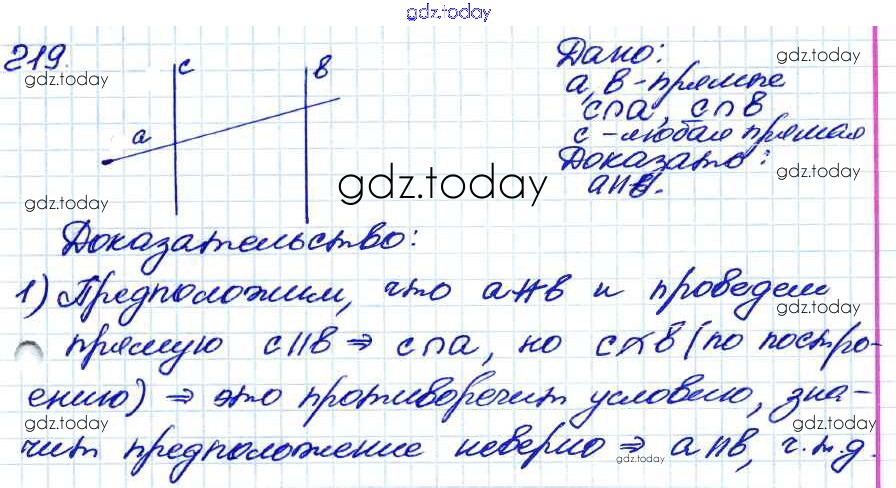 gdz.today
219.
c
в
a
Дано:
a, в - прямые
c∩a, c∩в
c - любая прямая
Доказать:
a∥в.
gdz.today
gdz.today
gdz.today
gdz.today
gdz.today
Доказательство:
1) Предположим, что a∦в и проведем
прямую c∥в ⇒ c∩a, но c∩̸в (по постро-
ению) ⇒ это противоречит условию, зна-
чит предположение неверно ⇒ a∥в, ч.т.д.
gdz.today
gdz.today
gdz.today
gdz.today
gdz.today
gdz.today
gdz.today
gdz.today